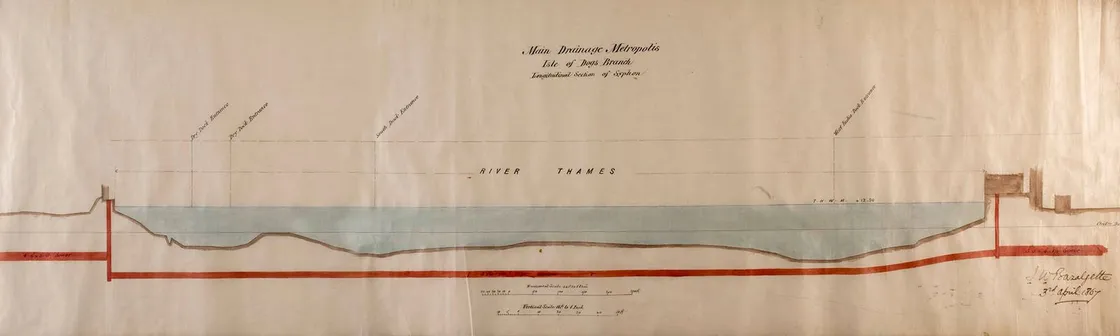 Main Drainage Metropolis
Isle of Dogs Branch
Longitudinal Section of Syphon
Dry Dock Entrance
Dry Dock Entrance
South Dock Entrance
West India Dock Entrance
RIVER THAMES
T. H. W. M.
Horizontal Scale
Vertical Scale
J W Bazalgette
3rd April 1867